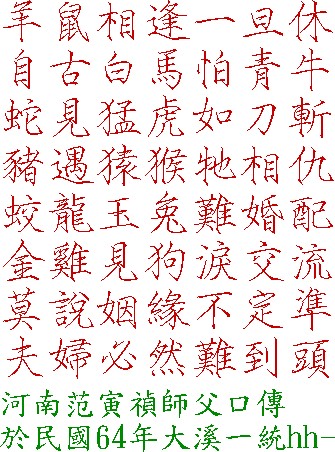 羊鼠相逢一旦休
自古白馬怕青牛
蛇見猛虎如刀斬
豬遇猿猴牠相仇
蛟龍玉兔難婚配
金雞見狗淚交流
莫說姻緣不定準
夫婦必然難到頭
河南范寅禎師父口傳
於民國64年大溪一統hh-